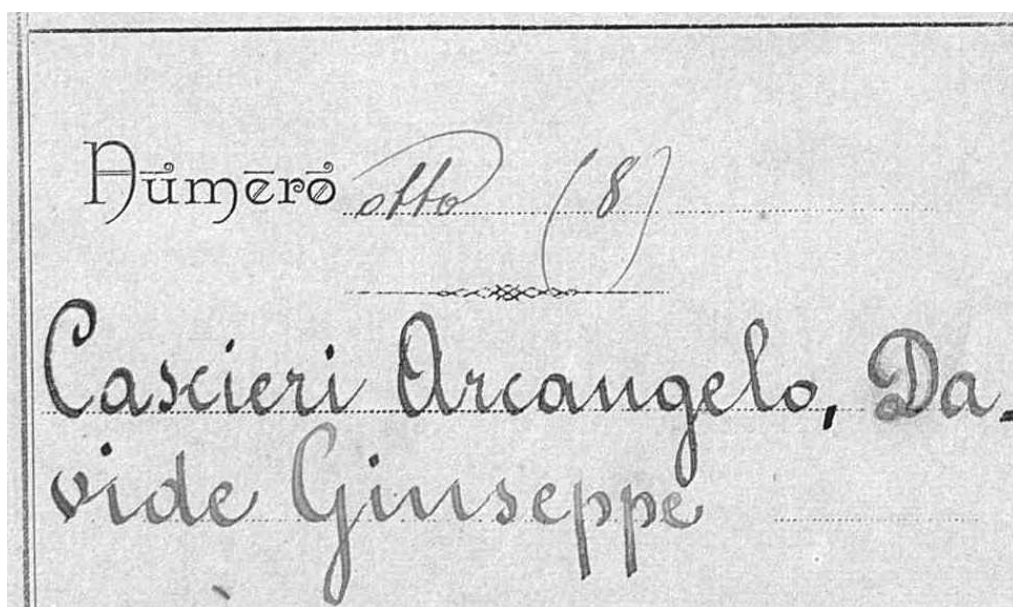 Numero otto (8)
Cascieri Arcangelo, Da-
vide Giuseppe